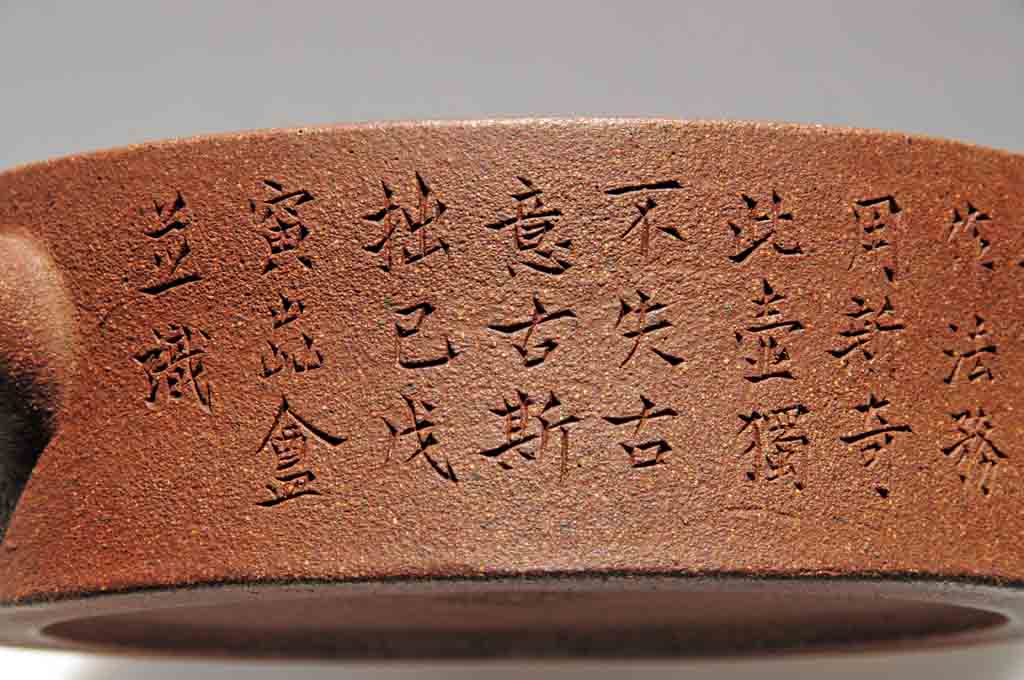 作法務
用新奇
此壺獨
不失古
意古斯
拙已戊
寅盦
並識